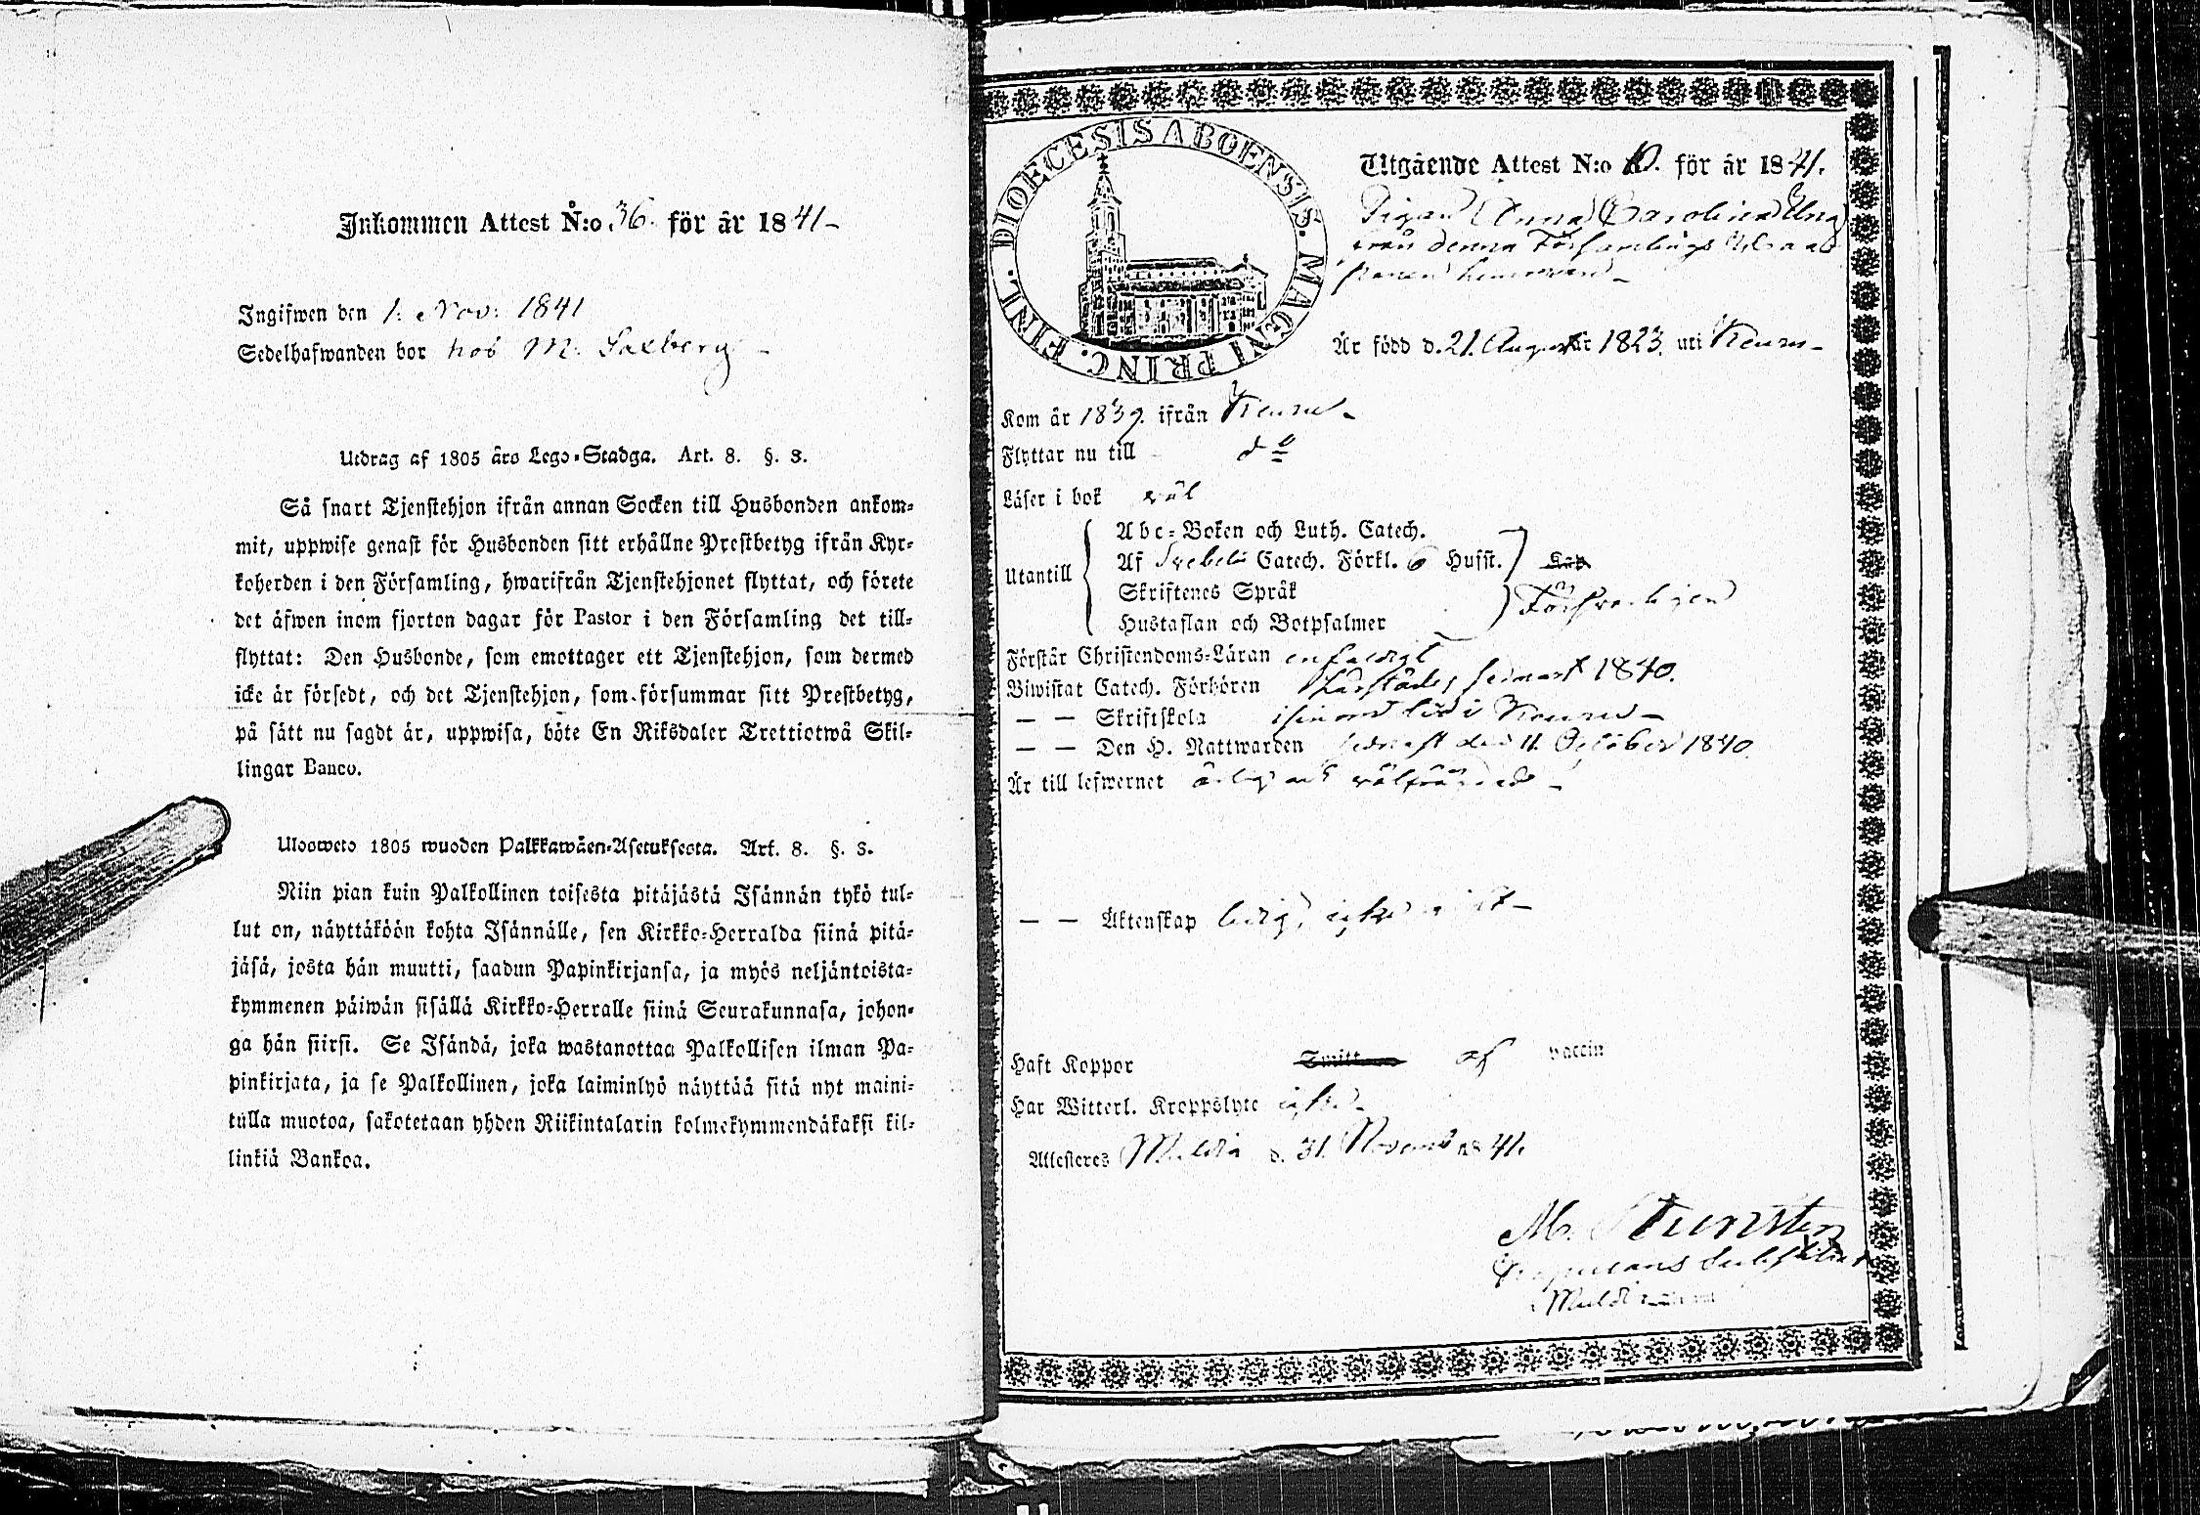 Inkommen Attest N:o 36. för år 1841-
Ingifwen den 1. Nov: 1841
Sedelhafwanden bor hos M. Saxberg -
Utdrag af 1805 års Lego-Stadga. Art. 8. §. 3.
Så snart Tjenstehjon ifrån annan Socken till Husbonden ankom-
mit, uppwise genast för Husbonden sitt erhållne Prestbetyg ifrån Kyr-
koherden i den Församling, hwarifrån Tjenstehjonet flyttat, och förete
det äfwen inom fjorton dagar för Pastor i den Församling det till-
flyttat: Den Husbonde, som emottager ett Tjenstehjon, som dermed
icke är försedt, och det Tjenstehjon, som försummar sitt Prestbetyg,
på sätt nu sagdt är, uppwisa, böte En Riksdaler Trettiotwå Skil-
lingar Banco.
Ulosweto 1805 wuoden Palkkawäen-Asetuksesta. Art. 8. §. 3.
Niin pian kuin Palkollinen toisesta pitäjästä Isännän tykö tul-
lut on, näyttäköön kohta Isännälle, sen Kirkko-Herralda siinä pitä-
jäsä, josta hän muutti, saadun Papinkirjansa, ja myös neljäntoista-
kymmenen päiwän sisällä Kirkko-Herralle siinä Seurakunnasa, johon-
ga hän siirsi. Se Isändä, joka wastanottaa Palkollisen ilman Pa-
pinkirjata, ja se Palkollinen, joka laiminlyö näyttää sitä nyt maini-
tulla muotoa, sakotetaan yhden Riikintalarin kolmekymmendäkaksi kil-
linkiä Bankoa.
DIOECESIS ABOENSIS. MAGNI PRINC. FINL.
Utgående Attest N:o 10. för år 1841.
Pigan Anna Carolina
från denna Församlings
Är född d. 21. August år 1823. uti Keuru-
Kom år 1839. ifrån Keuru-
Flyttar nu till do
Läser i bok väl
Abc-Boken och Luth. Catech.
Utantill Af Svebelii Catech. Förkl. 6 Hufst.
Skriftenes Språk Församligen
Hustaflan och Botpsalmer
Förstår Christendoms-Läran enfaldigt
Biwistat Catech. Förhören härstädes senast 1840.
- - Skriftskola i Keuru-
- - Den H. Nattwarden senast den 11. October 1840.
Är till lefwernet ärlig och välfräjdad -
- - Äktenskap ledig, icke
Haft Koppor af vaccin
Har Witterl. Kroppslyte icke-
Attesteres Muldia d. 31. Novemb 1841.
M.